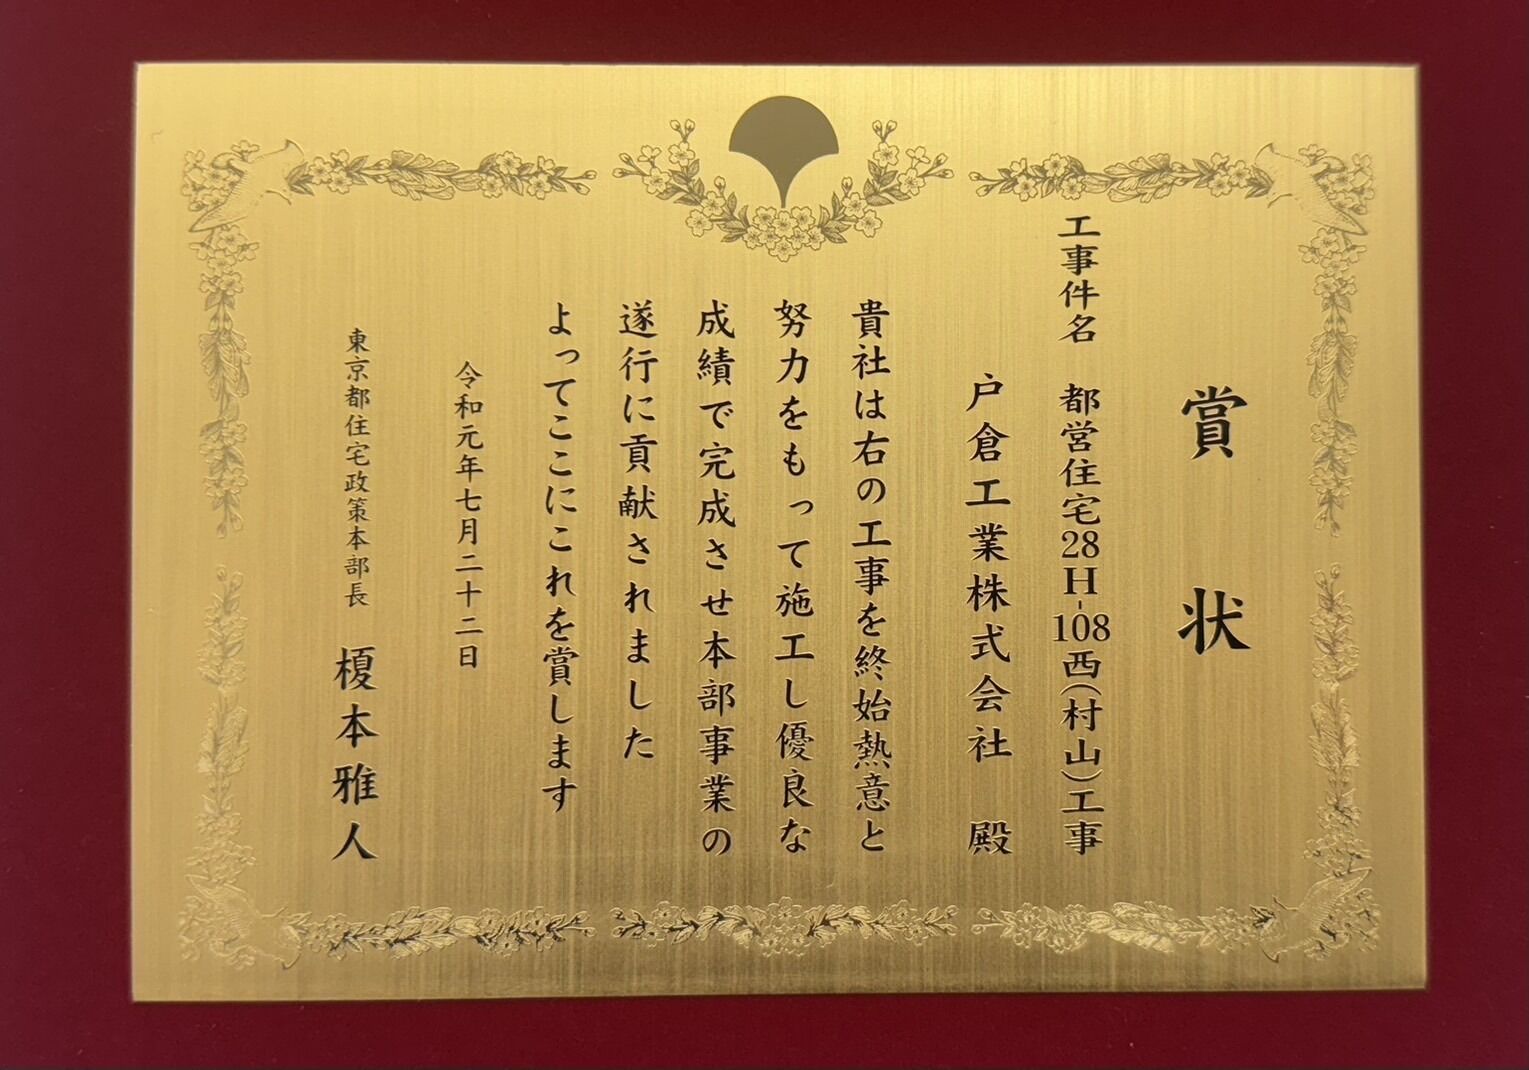 賞状
工事件名 都営住宅28H-108西(村山)工事
戸倉工業株式会社 殿
貴社は右の工事を終始熱意と
努力をもって施工し優良な
成績で完成させ本部事業の
遂行に貢献されました
よってここにこれを賞します
令和元年七月二十二日
東京都住宅政策本部長 榎本雅人